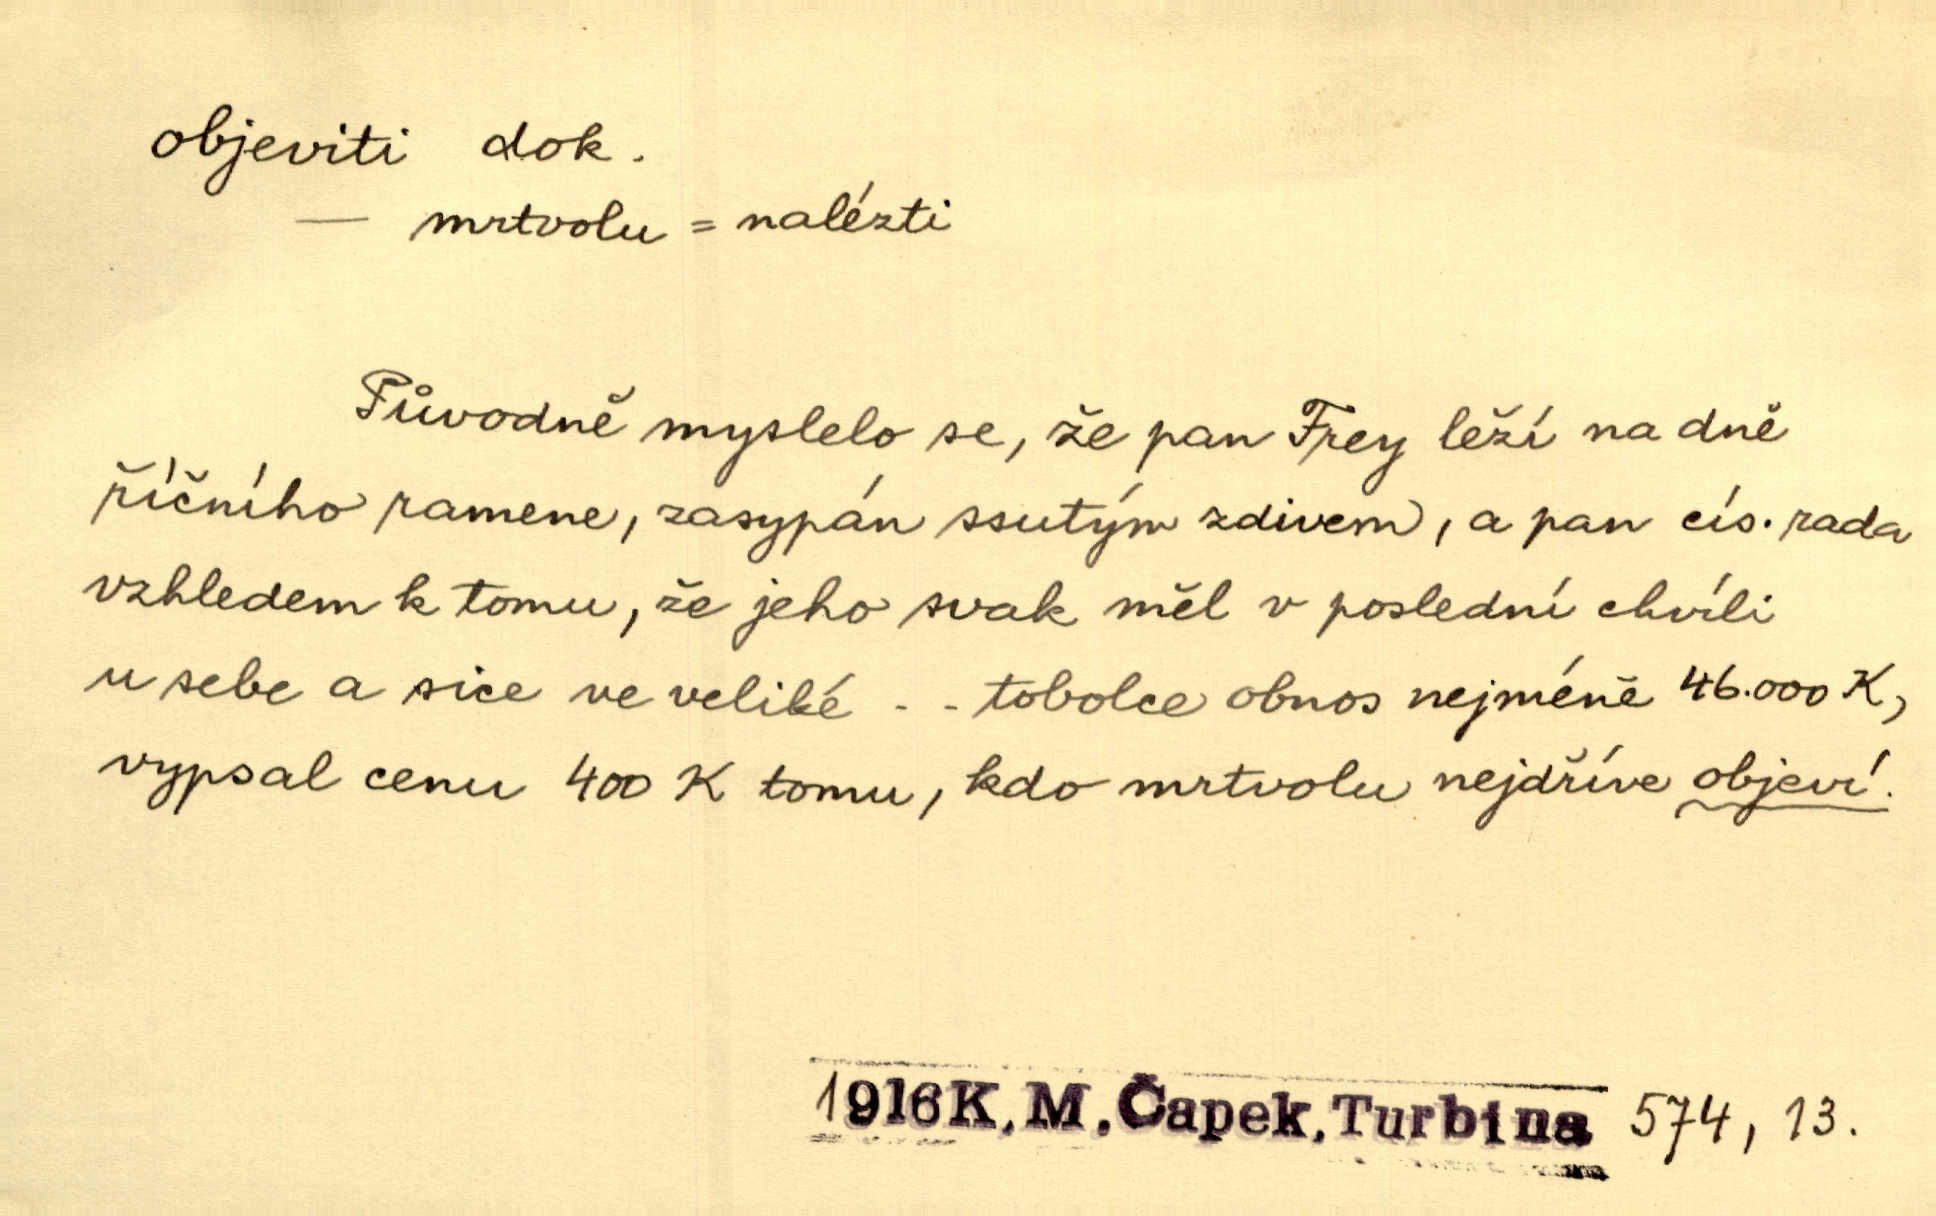 objeviti dok.
— mrtvolu = nalézti
Původně myslelo se, že pan Frey leží na dně
říčního ramene, zasypán ssutým zdivem, a pan cís. rada
vzhledem k tomu, že jeho svak měl v poslední chvíli
u sebe a sice ve veliké - - tobolce obnos nejméně 46.000 K,
vypsal cenu 400 K tomu, kdo mrtvolu nejdříve objeví.
1916 K. M. Čapek, Turbina 574, 13.